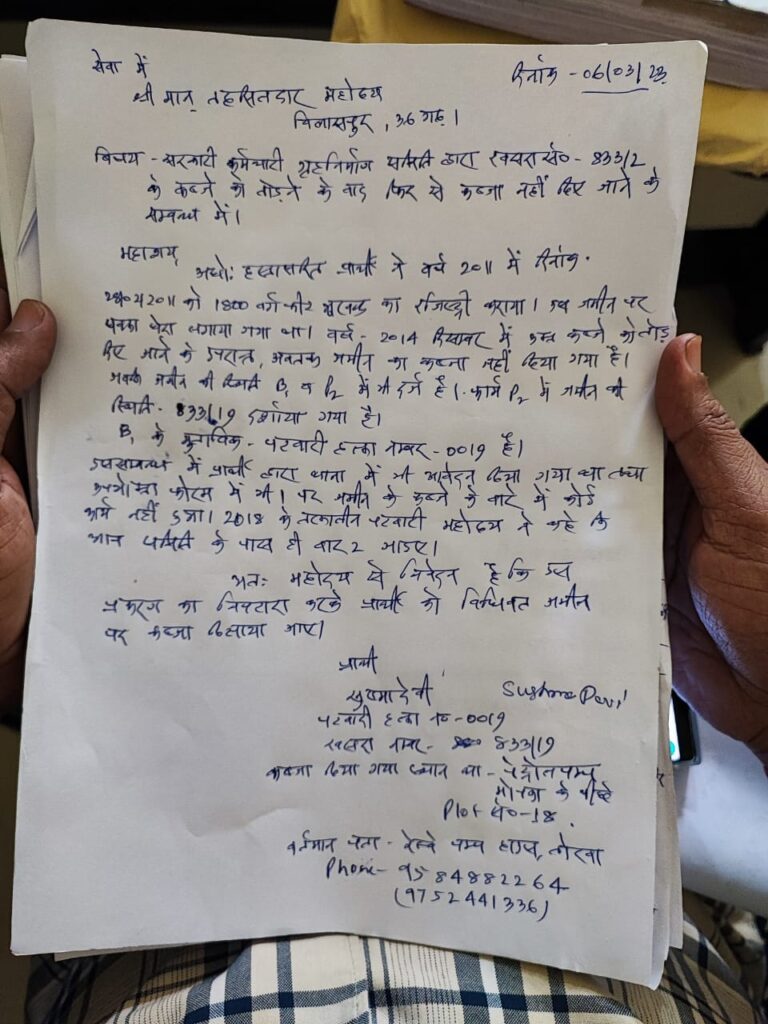 सेवा में
दिनांक - 06/03/23
श्री मान् तहसिलदार महोदय
बिलासपुर, छ6 गढ़।
विषय - सरकारी कर्मचारी गृहनिर्माण समिति द्वारा खसरा सं०- 833/2
के कब्जे को तोड़ने के बाद फिर से कब्जा नहीं दिए जाने के
सम्बन्ध में।
महाशय,
अधो: हस्ताक्षरित प्रार्थी ने वर्ष 2011 में दिनांक.
2011 को 1800 वर्गफीट भूखण्ड का रजिस्ट्री कराया। उस जमीन पर
पक्का घेरा लगाया गया था। वर्ष - 2014 दिसम्बर में उक्त कब्जे को तोड़
दिए जाने के उपरान्त, अबतक जमीन का कब्जा नहीं दिया गया है।
जबकि जमीन की स्थिति B1 व P2 में भी दर्ज है। फार्म P2 में जमीन की
स्थिति - 833/19 दर्शाया गया है।
B1 के मुताबिक - पटवारी हल्का नम्बर - 0019 है।
इस सम्बन्ध में प्रार्थी द्वारा थाना में भी आवेदन दिया गया था तथा
फोरम में भी। पर जमीन के कब्जे के बारे में कोई
कार्य नहीं हुआ। 2018 के तत्कालीन पटवारी महोदय ने कहे कि
आप समिति के पास ही बार 2 जाइए।
अतः महोदय से निवेदन है कि इस
प्रकरण का निपटारा करके प्रार्थी को विधिवत जमीन
पर कब्जा दिलाया जाए।
प्रार्थी
सुषमा देवी Sushma Devi
पटवारी हल्का नं - 0019
खसरा नम्बर - 833/19
कब्जा दिया गया स्थान था - पेट्रोलपम्प
मोपका के पीछे
Plot सं०-18.
वर्तमान पता - रेल्वे पम्प हाउस, लोरवा
Phone - 9584882264
(9752441336)